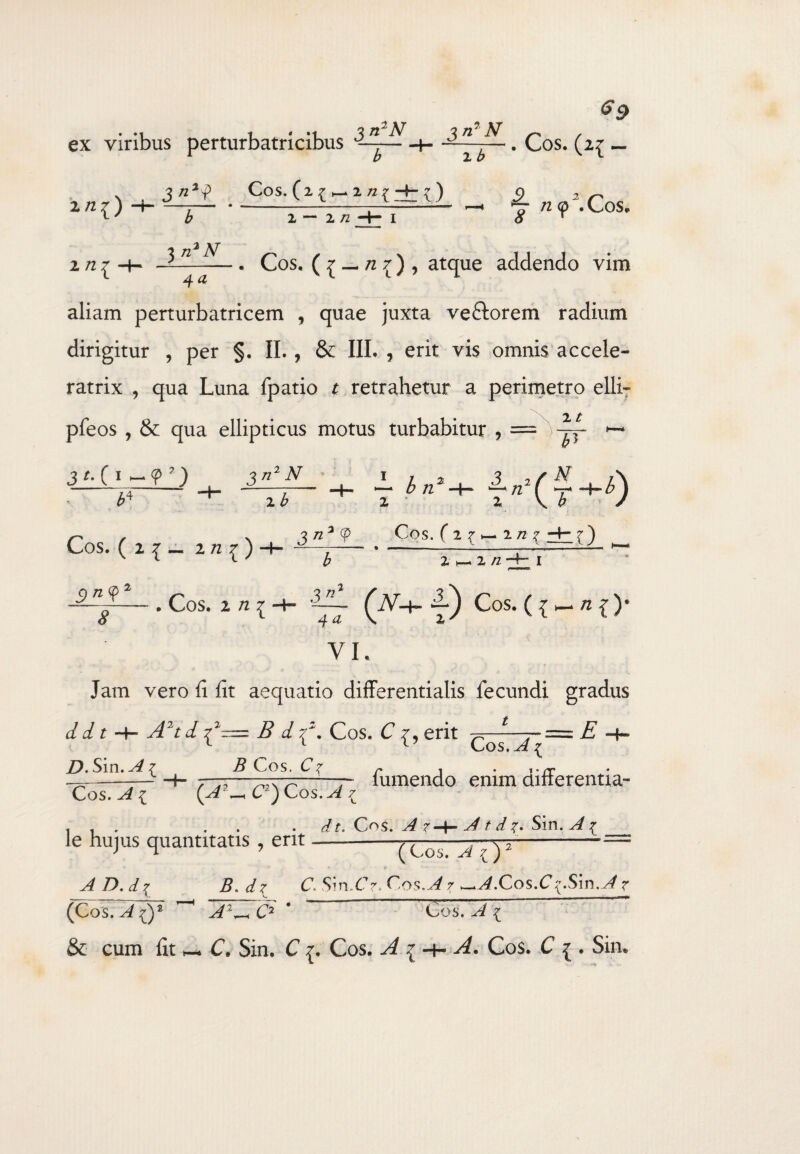 69
ex viribus perturbatricibus 3n²N/b + 3n²N/2b . Cos. (2ζ —
2nζ) + 3n²φ/b . Cos. (2ζ — 2nζ ± ζ)/(2 — 2n ± 1) — 9/8 nφ². Cos.
2nζ + 3n²N/4a . Cos. (ζ — nζ) , atque addendo vim
aliam perturbatricem , quae juxta vectorem radium
dirigitur , per §. II. , & III. , erit vis omnis accele-
ratrix , qua Luna spatio t retrahetur a perimetro elli-
pseos , & qua ellipticus motus turbabitur , = 2t/b³ —
3t.(1 — φ²)/b⁴ + 3n²N/2b + 1/2 bn² + 3/2 n² (N/b + b)
Cos. (2ζ — 2nζ) + 3n²φ/b . Cos. (2ζ — 2nζ ± ζ)/(2 — 2n ± 1) —
9nφ²/8 . Cos. 2nζ + 3n²/4a (N + 3/2) Cos. (ζ — nζ).
VI.
Jam vero si sit aequatio differentialis secundi gradus
ddt + A²tdζ² = Bdζ². Cos. Cζ, erit t/Cos. Aζ = E +
D. Sin. Aζ/Cos. Aζ + B Cos. Cζ/(A² — C²) Cos. Aζ sumendo enim differentia-
le hujus quantitatis , erit dt. Cos. Aζ + Atdζ. Sin. Aζ/(Cos. Aζ)² =
AD.dζ/(Cos. Aζ)² — B.dζ/A² — C² . C. Sin. Cζ. Cos. Aζ — A. Cos. Cζ. Sin. Aζ/Cos. Aζ
& cum sit — C. Sin. Cζ. Cos. Aζ + A. Cos. Cζ . Sin.